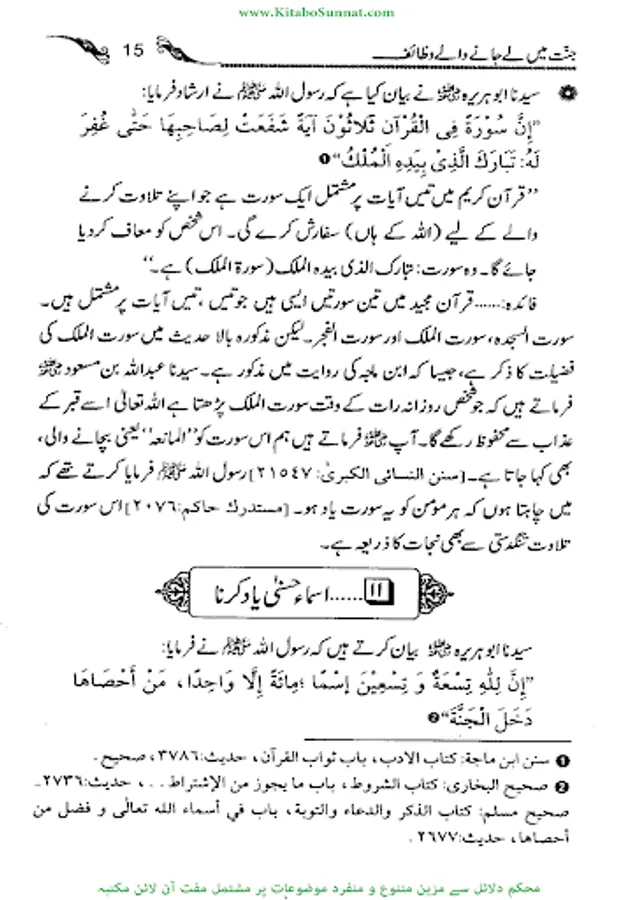 www.KitaboSunnat.com
جنّت میں لے جانے والے وظائف
15
سیدنا ابو ہریرہ رضی اللہ عنہ نے بیان کیا ہے کہ رسول اللہ ﷺ نے ارشاد فرمایا:
”إِنَّ سُوْرَةً فِي الْقُرْآنِ ثَلَاثُوْنَ آيَةً شَفَعَتْ لِصَاحِبِهَا حَتّٰى غُفِرَ
لَهُ: تَبَارَكَ الَّذِيْ بِيَدِهِ الْمُلْكُ“ ❶
”قرآن کریم میں تیس آیات پر مشتمل ایک سورت ہے جو اپنے تلاوت کرنے
والے کے لیے (اللہ کے ہاں) سفارش کرے گی۔ اس شخص کو معاف کردیا
جائے گا۔ وہ سورت: تبارک الذی بیدہ الملک (سورۃ الملک) ہے۔“
فائدہ:......قرآن مجید میں تین سورتیں ایسی ہیں جو تیس، تیس آیات پر مشتمل ہیں۔
سورت السجدہ، سورت الملک اور سورت الفجر۔ لیکن مذکورہ بالا حدیث میں سورت الملک کی
فضیلت کا ذکر ہے، جیسا کہ ابن ماجہ کی روایت میں مذکور ہے۔ سیدنا عبداللہ بن مسعود رضی اللہ عنہ
فرماتے ہیں کہ جو شخص روزانہ رات کے وقت سورت الملک پڑھتا ہے اللہ تعالیٰ اسے قبر کے
عذاب سے محفوظ رکھے گا۔ آپ رضی اللہ عنہ فرماتے ہیں ہم اس سورت کو ”المانعہ“ یعنی بچانے والی،
بھی کہا جاتا ہے۔ [سنن النسائی الکبریٰ: ۲۱۵۴۷] رسول اللہ ﷺ فرمایا کرتے تھے کہ
میں چاہتا ہوں کہ ہر مومن کو یہ سورت یاد ہو۔ [مستدرك حاكم: ۲۰۷۶] اس سورت کی
تلاوت تنگدستی سے بھی نجات کا ذریعہ ہے۔
۱۱ ......اسماء حسنیٰ یاد کرنا
سیدنا ابو ہریرہ رضی اللہ عنہ بیان کرتے ہیں کہ رسول اللہ ﷺ نے فرمایا:
”إِنَّ لِلّٰهِ تِسْعَةً وَ تِسْعِيْنَ اِسْمًا ؛مِائَةً إِلَّا وَاحِدًا، مَنْ أَحْصَاهَا
دَخَلَ الْجَنَّةَ“ ❷
❶ سنن ابن ماجة: كتاب الادب، باب ثواب القرآن، حديث:۳۷۸۶، صحيح۔
❷ صحيح البخاري: كتاب الشروط، باب ما يجوز من الإشتراط . . ، حديث:۲۷۳۶۔
صحيح مسلم: كتاب الذكر والدعاء والتوبة، باب في أسماء الله تعالٰى و فضل من
أحصاها، حديث:۲۶۷۷.
محکم دلائل سے مزین متنوع و منفرد موضوعات پر مشتمل مفت آن لائن مکتبہ